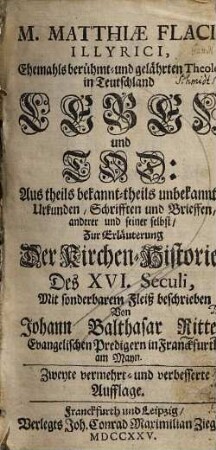 M. MATTHIÆ FLACI
ILLYRICI,
Ehemahls berühmt- und gelährten Theolo
in Teutschland
LEBEN
und
TOD:
Aus theils bekannt- theils unbekannt
Urkunden / Schrifften und Brieffen,
anderer und seiner selbst /
Zur Erläuterung
Der Kirchen-Historie
Des XVI. Seculi,
Mit sonderbarem Fleiß beschrieben
Von
Johann Balthasar Ritte
Evangelischen Predigern in Franckfurth
am Mayn.
Zweyte vermehrt- und verbesserte
Aufflage.
Franckfurth und Leipzig /
Verlegts Joh. Conrad Maximilian Zieg
MDCCXXV.